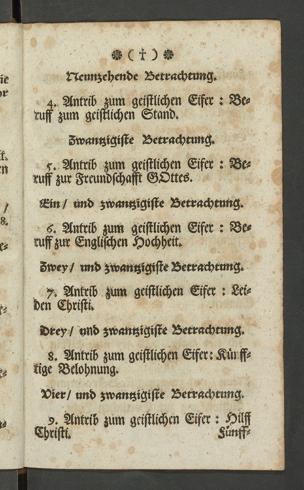 ❊ ( † ) ❊
Neunzehende Betrachtung.
4. Antrib zum geistlichen Eifer : Be-
ruff zum geistlichen Stand.
Zwantzigiste Betrachtung.
5. Antrib zum geistlichen Eifer : Be-
ruff zur Freundschafft GOttes.
Ein/ und zwantzigiste Betrachtung.
6. Antrib zum geistlichen Eifer : Be-
ruff zur Englischen Hochheit.
Zwey/ und zwantzigiste Betrachtung.
7. Antrib zum geistlichen Eifer : Lei-
den Christi.
Drey/ und zwantzigiste Betrachtung.
8. Antrib zum geistlichen Eifer: Künff-
tige Belohnung.
Vier/ und zwantzigiste Betrachtung.
9. Antrib zum geistlichen Eifer : Hilff
Christi. Fünff-